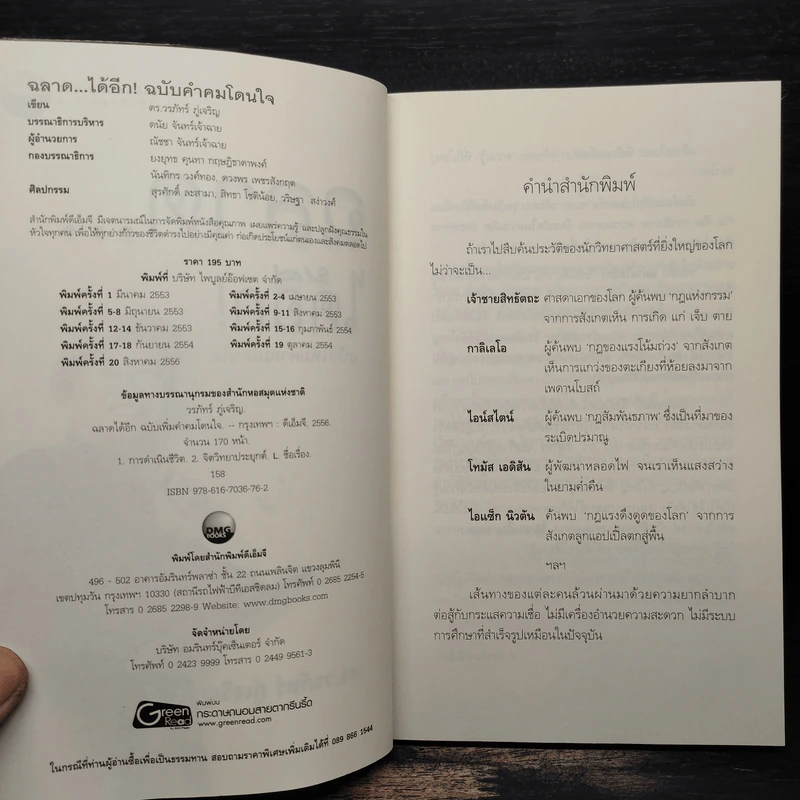 ฉลาด...ได้อีก! ฉบับคำคมโดนใจ
เขียน ดร.วรภัทร์ ภู่เจริญ
บรรณาธิการบริหาร ดนัย จันทร์เจ้าฉาย
ผู้อำนวยการ ณัชชา จันทร์เจ้าฉาย
กองบรรณาธิการ ยงยุทธ คุนทา กฤษฎิธาดาพงศ์
นันทิกร วงค์ทอง, ดวงพร เพชรสังกฤต
ศิลปกรรม สุรศักดิ์ ละสามา, สิทธา โชติน้อย, วริษฐา สง่าวงศ์
สำนักพิมพ์ดีเอ็มจี มีเจตนารมณ์ในการจัดพิมพ์หนังสือคุณภาพ เผยแพร่ความรู้ และปลูกฝังคุณธรรมใน
หัวใจทุกคน เพื่อให้ทุกย่างก้าวของชีวิตดำรงไปอย่างมีคุณค่า ก่อเกิดประโยชน์แก่ตนเองและสังคมตลอดไป
ราคา 195 บาท
พิมพ์ที่ บริษัท ไพบูลย์อ๊อฟเซต จำกัด
พิมพ์ครั้งที่ 1 มีนาคม 2553 พิมพ์ครั้งที่ 2-4 เมษายน 2553
พิมพ์ครั้งที่ 5-8 มิถุนายน 2553 พิมพ์ครั้งที่ 9-11 สิงหาคม 2553
พิมพ์ครั้งที่ 12-14 ธันวาคม 2553 พิมพ์ครั้งที่ 15-16 กุมภาพันธ์ 2554
พิมพ์ครั้งที่ 17-18 กันยายน 2554 พิมพ์ครั้งที่ 19 ตุลาคม 2554
พิมพ์ครั้งที่ 20 สิงหาคม 2556
ข้อมูลทางบรรณานุกรมของสำนักหอสมุดแห่งชาติ
วรภัทร์ ภู่เจริญ.
ฉลาดได้อีก ฉบับเพิ่มคำคมโดนใจ. -- กรุงเทพฯ : ดีเอ็มจี, 2556.
จำนวน 170 หน้า.
1. การดำเนินชีวิต. 2. จิตวิทยาประยุกต์. I. ชื่อเรื่อง.
158
ISBN 978-616-7036-76-2
DMG
BOOKS
พิมพ์โดยสำนักพิมพ์ดีเอ็มจี
496 - 502 อาคารอัมรินทร์พลาซ่า ชั้น 22 ถนนเพลินจิต แขวงลุมพินี
เขตปทุมวัน กรุงเทพฯ 10330 (สถานีรถไฟฟ้าบีทีเอสชิดลม) โทรศัพท์ 0 2685 2254-5
โทรสาร 0 2685 2298-9 Website: www.dmgbooks.com
จัดจำหน่ายโดย
บริษัท อมรินทร์บุ๊คเซ็นเตอร์ จำกัด
โทรศัพท์ 0 2423 9999 โทรสาร 0 2449 9561-3
Green
Read
พิมพ์บน
กระดาษถนอมสายตากรีนรี้ด
www.greenread.com
ในกรณีที่ท่านผู้อ่านซื้อเพื่อเป็นธรรมทาน สอบถามราคาพิเศษเพิ่มเติมได้ที่ 089 866 1544
คำนำสำนักพิมพ์
ถ้าเราไปสืบค้นประวัติของนักวิทยาศาสตร์ที่ยิ่งใหญ่ของโลก
ไม่ว่าจะเป็น...
เจ้าชายสิทธัตถะ ศาสดาเอกของโลก ผู้ค้นพบ ‘กฎแห่งกรรม’
จากการสังเกตเห็น การเกิด แก่ เจ็บ ตาย
กาลิเลโอ ผู้ค้นพบ ‘กฎของแรงโน้มถ่วง’ จากสังเกต
เห็นการแกว่งของตะเกียงที่ห้อยลงมาจาก
เพดานโบสถ์
ไอน์สไตน์ ผู้ค้นพบ ‘กฎสัมพันธภาพ’ ซึ่งเป็นที่มาของ
ระเบิดปรมาณู
โทมัส เอดิสัน ผู้พัฒนาหลอดไฟ จนเราเห็นแสงสว่าง
ในยามค่ำคืน
ไอแซ็ก นิวตัน ค้นพบ ‘กฎแรงดึงดูดของโลก’ จากการ
สังเกตลูกแอปเปิ้ลตกสู่พื้น
ฯลฯ
เส้นทางของแต่ละคนล้วนผ่านมาด้วยความยากลำบาก
ต่อสู้กับกระแสความเชื่อ ไม่มีเครื่องอำนวยความสะดวก ไม่มีระบบ
การศึกษาที่สำเร็จรูปเหมือนในปัจจุบัน